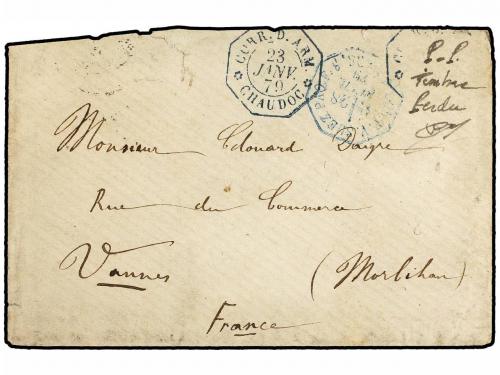 CORR. D. ARM
23
JANV
79
CHAUDOC
P.P.
Timbre
perdu
Monsieur Edouard Daigre
Rue du Commerce
Vannes (Morbihan)
France